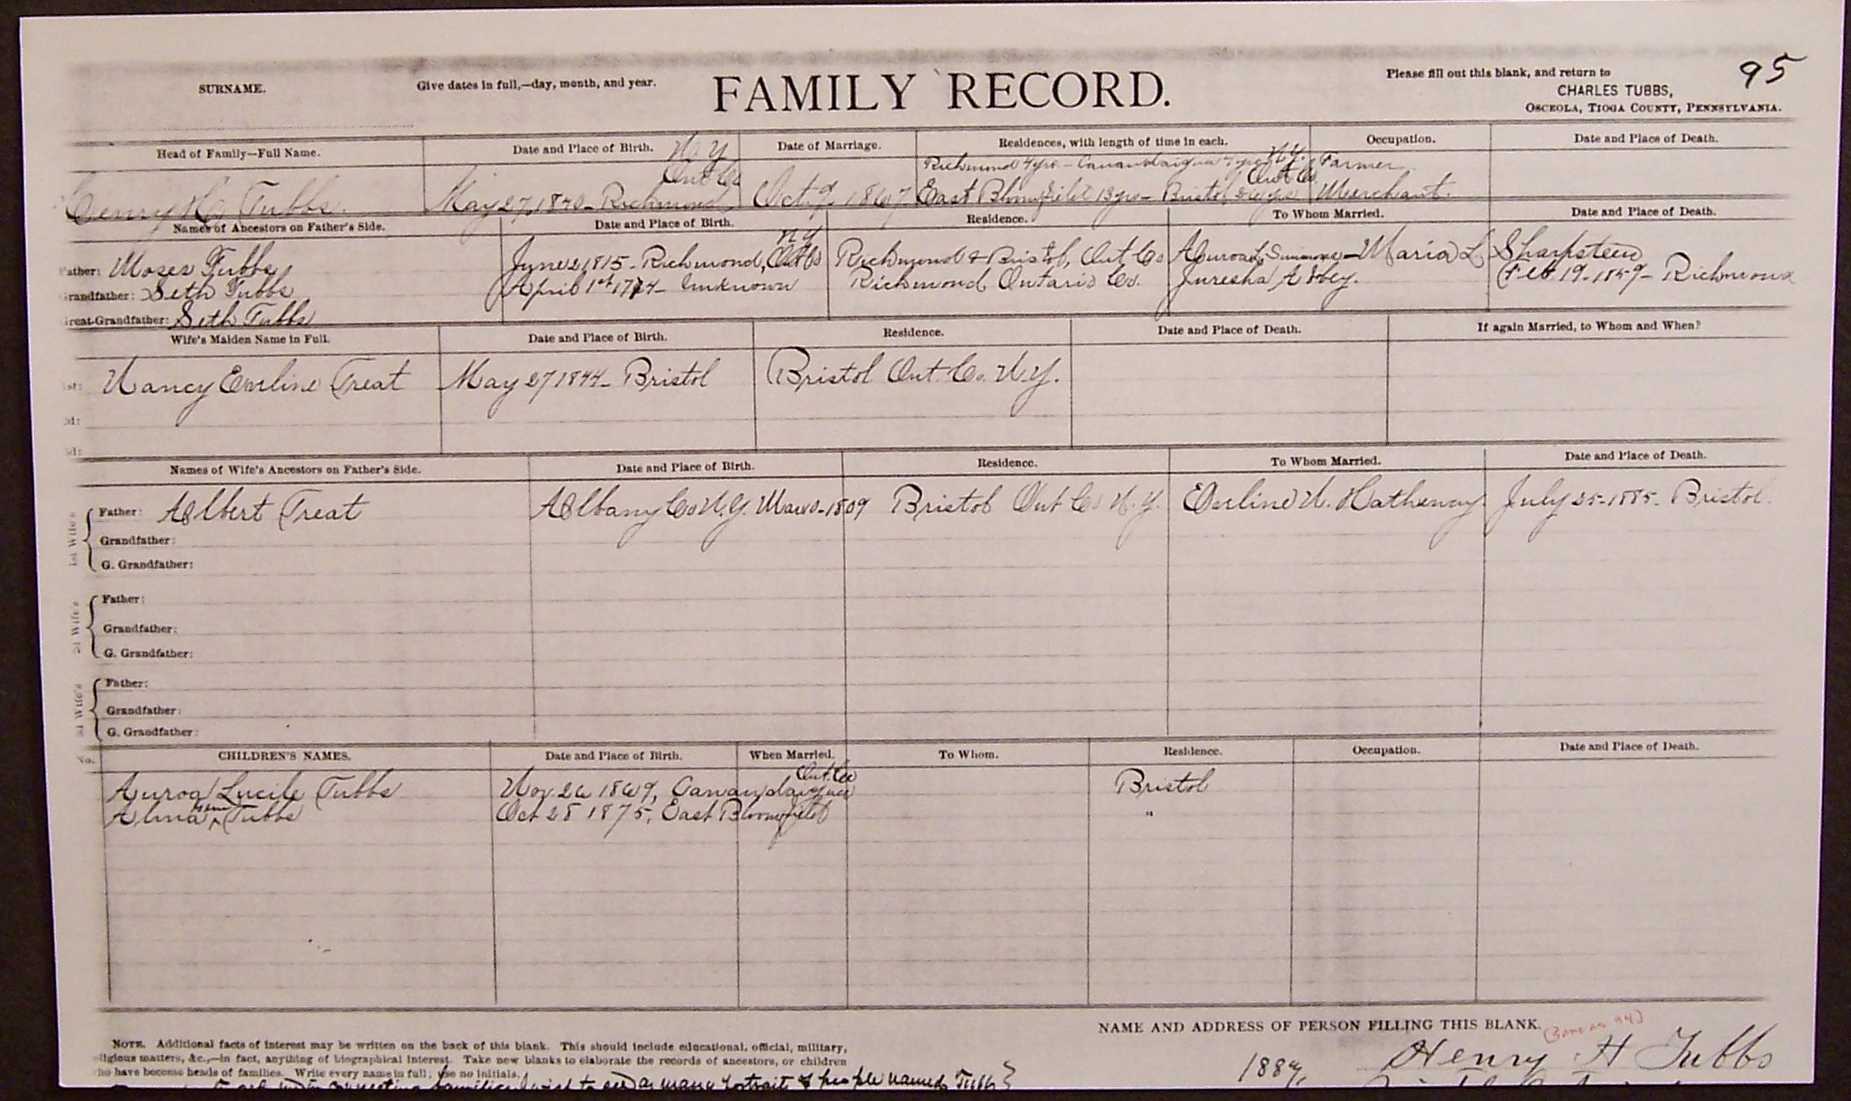 95
SURNAME.
Give dates in full,—day, month, and year.
FAMILY RECORD.
Please fill out this blank, and return to
CHARLES TUBBS,
OSCEOLA, TIOGA COUNTY, PENNSYLVANIA.
Head of Family—Full Name. Date and Place of Birth. Date of Marriage. Residences, with length of time in each. Occupation. Date and Place of Death.
N. Y. Richmond 4 yrs - Canandaigua 7 yrs N.Y. Farmer
Ont Co Ont Co
Henry H. Tubbs. May 27, 1840 - Richmond Oct 9, 1867 East Bloomfield 13 yrs - Bristol yrs Merchant.
Names of Ancestors on Father's Side. Date and Place of Birth. Residence. To Whom Married. Date and Place of Death.
N.Y.
Father: Moses Tubbs June 2, 1815 - Richmond, Ont Co Richmond & Bristol, Ont Co Simmons - Maria L. Sharpsteen
Grandfather: Seth Tubbs April 1st - Unknown Richmond Ontario Co. Feb 19 - 1859 - Richmond
Great-Grandfather: Seth Tubbs
Wife's Maiden Name in Full. Date and Place of Birth. Residence. Date and Place of Death. If again Married, to Whom and When?
1st: Nancy Emeline Treat May 27 1844 - Bristol Bristol Ont. Co. N.Y.
2d:
3d:
Names of Wife's Ancestors on Father's Side. Date and Place of Birth. Residence. To Whom Married. Date and Place of Death.
1st Wife's
Father: Albert Treat Albany Co N.Y. 1809 Bristol Ont Co N.Y. N. Hathaway July 25 - 1885 - Bristol.
Grandfather:
G. Grandfather:
2d Wife's
Father:
Grandfather:
G. Grandfather:
3d Wife's
Father:
Grandfather:
G. Grandfather:
No. CHILDREN'S NAMES. Date and Place of Birth. When Married. To Whom. Residence. Occupation. Date and Place of Death.
Ont. Co
Lucile Tubbs Nov 26 1869, Canandaigua Bristol
Alma Tubbs Oct 28 1875, East Bloomfield "
NAME AND ADDRESS OF PERSON FILLING THIS BLANK.
NOTE. Additional facts of interest may be written on the back of this blank. This should include educational, official, military,
religious matters, &c.,—in fact, anything of biographical interest. Take new blanks to elaborate the records of ancestors, or children
who have become heads of families. Write every name in full; use no initials.
Henry H Tubbs
connecting families I wish to as many portraits of people named Tubbs